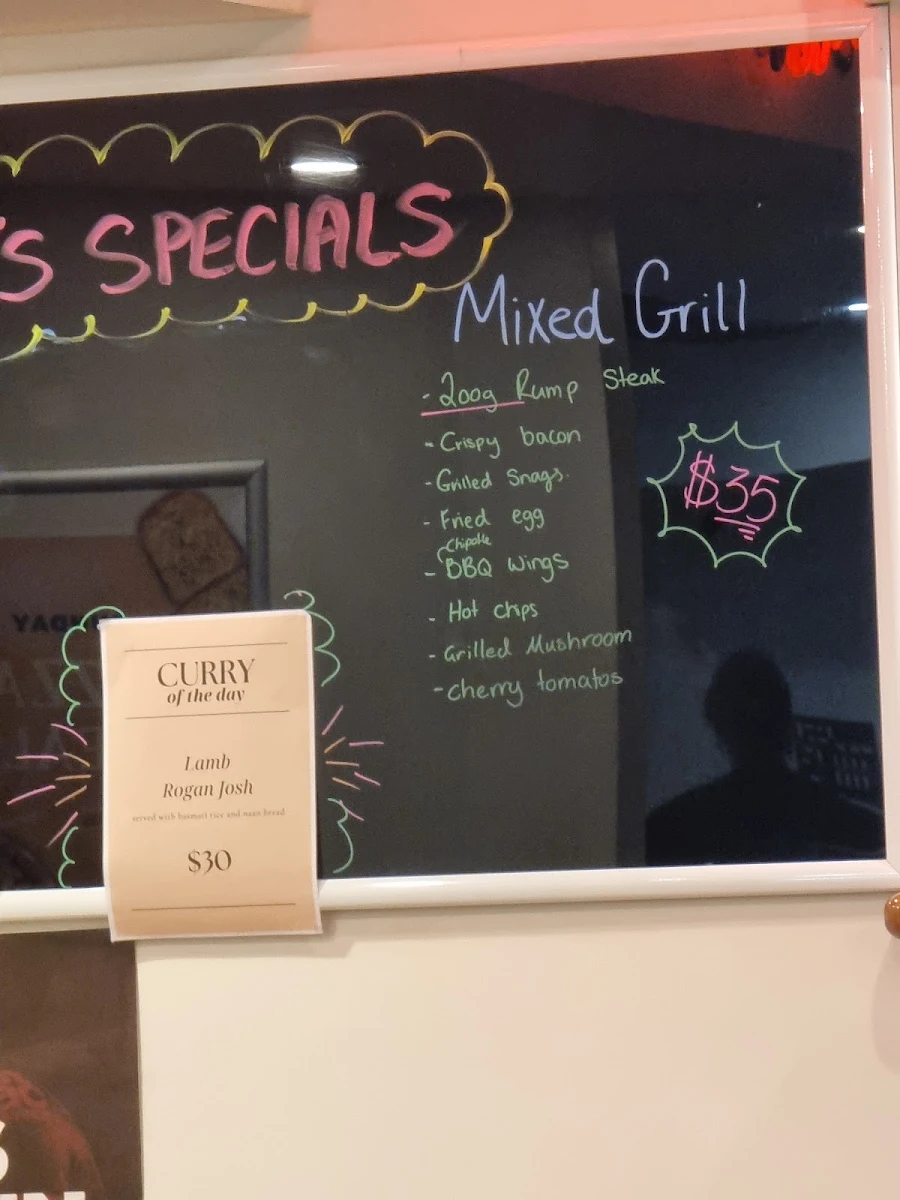 'S SPECIALS
Mixed Grill
- 200g Rump Steak
- Crispy bacon
- Grilled Snags.
- Fried egg
Chipotle
- BBQ Wings
- Hot chips
- Grilled Mushroom
- cherry tomatos
$35
CURRY
of the day
Lamb
Rogan Josh
served with basmati rice and naan bread
$30